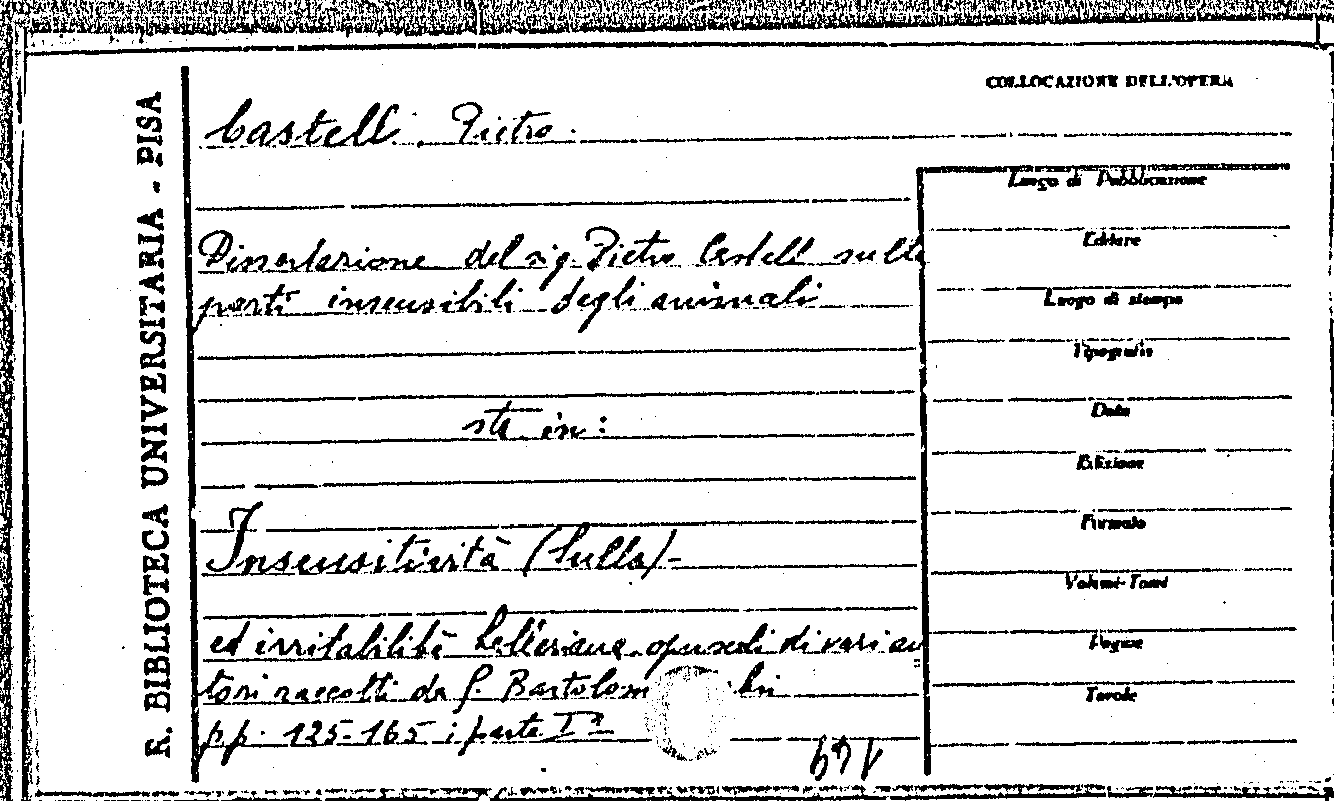 R. BIBLIOTECA UNIVERSITARIA - PISA
COLLOCAZIONE DELL'OPERA
Castell. Pietro.
Dissertazione del sig. Pietro Castell sulle
parti insensibili degli animali
sta in:
Insensitività (Sulla)-
ed irritabilità halleriana. opuscoli di vari au=
tori raccolti da G. Bartolom
pp. 125-165; parte Iª
Luogo di Pubblicazione
Editore
Luogo di stampa
Tipografia
Data
Edizione
Formato
Volumi-Tomi
Pagine
Tavole